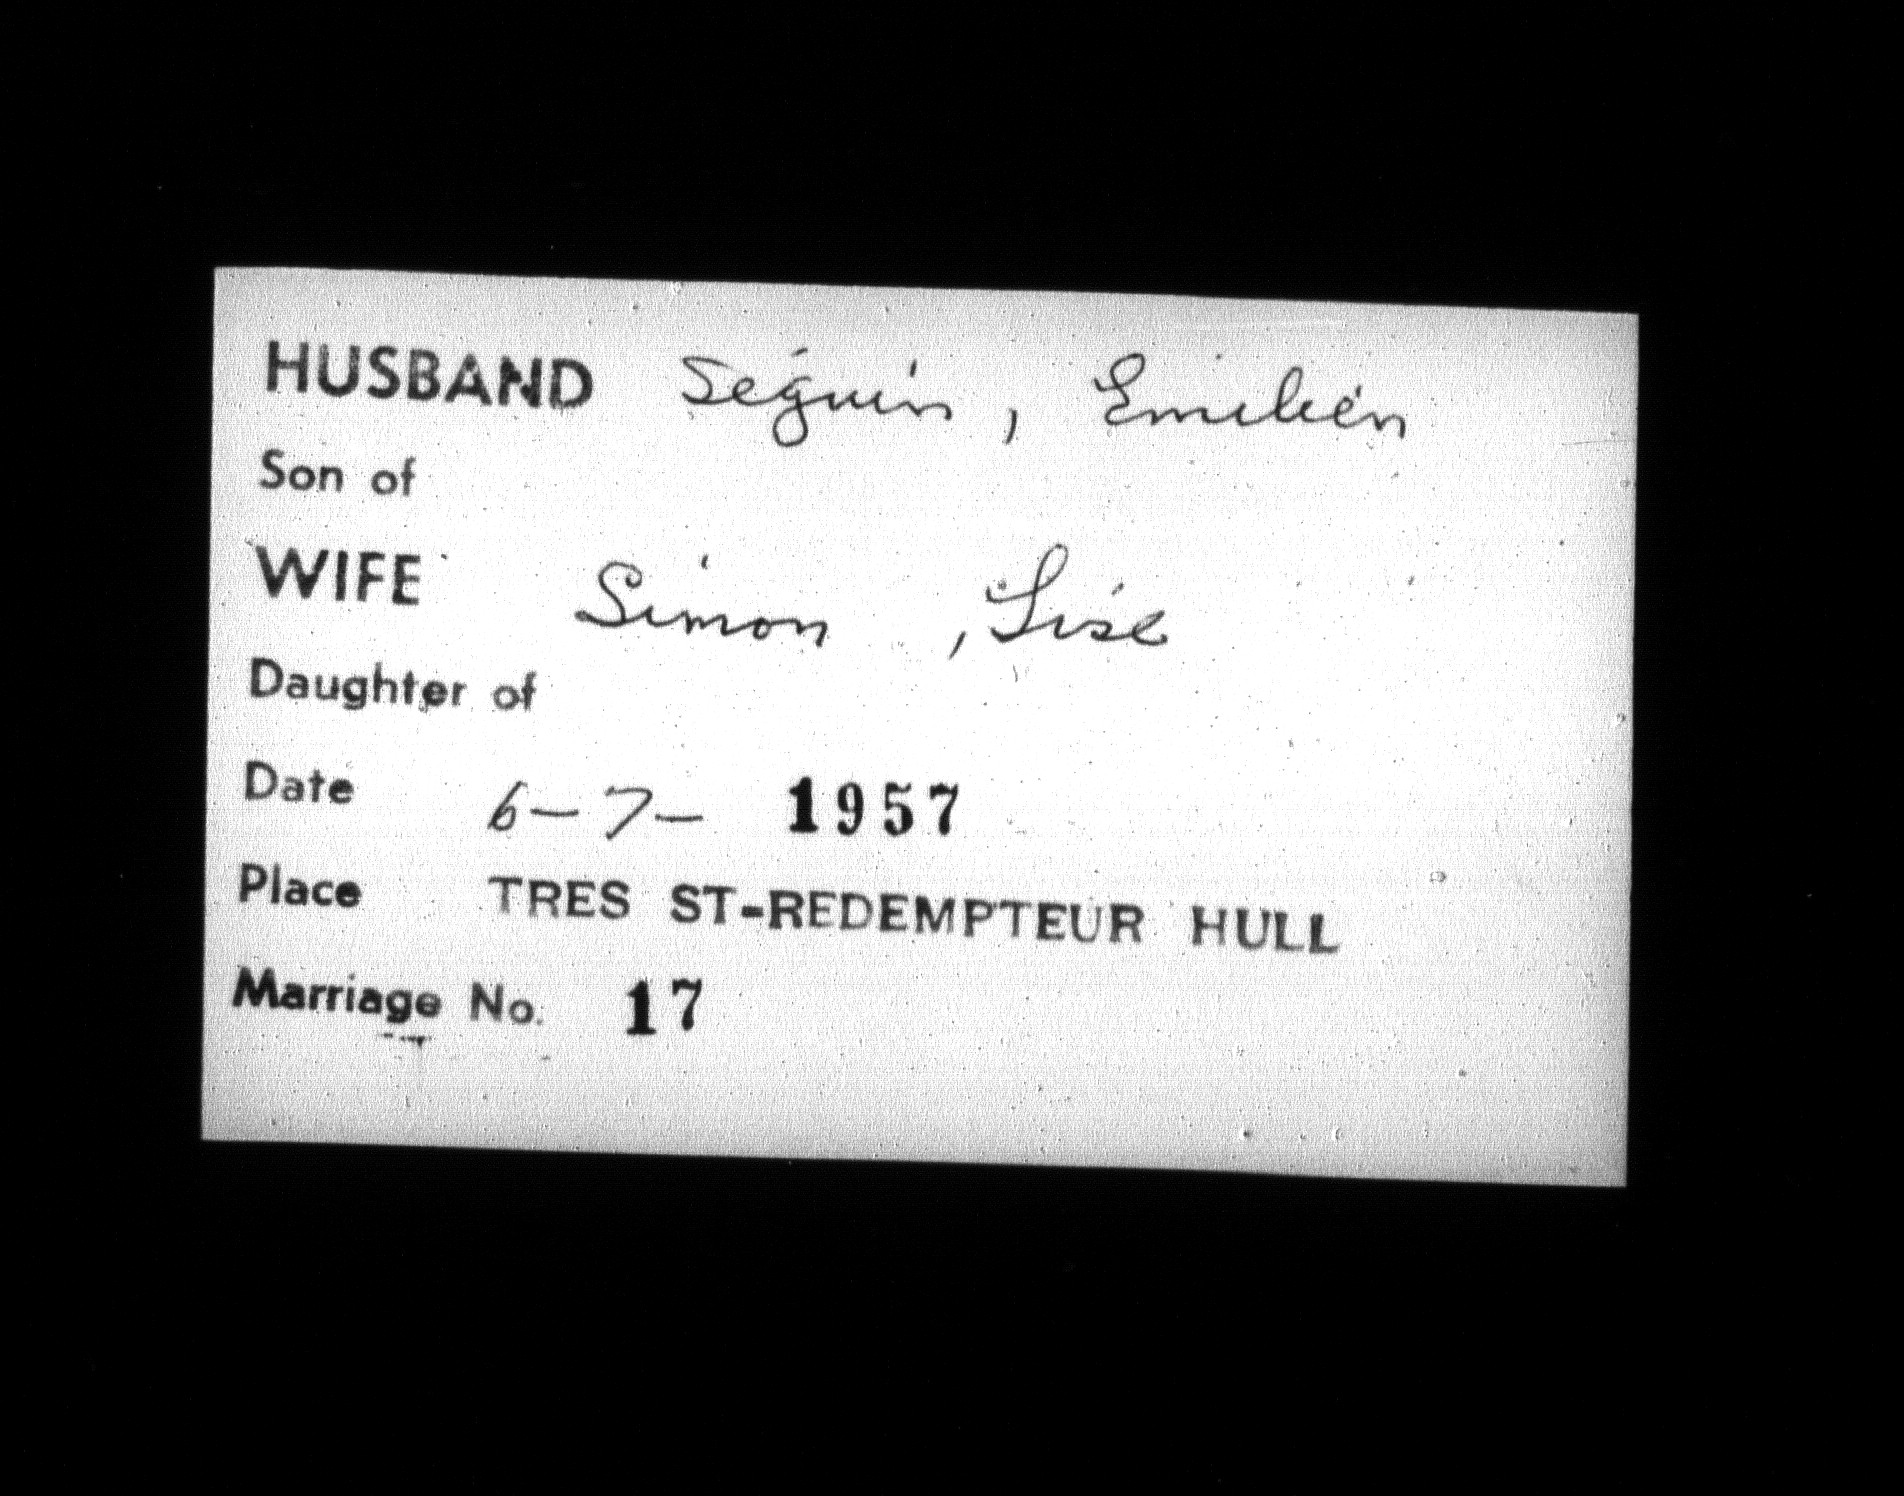 HUSBAND Séguin, Emilien
Son of
WIFE Simon, Lise
Daughter of
Date 6-7- 1957
Place TRES ST-REDEMPTEUR HULL
Marriage No. 17